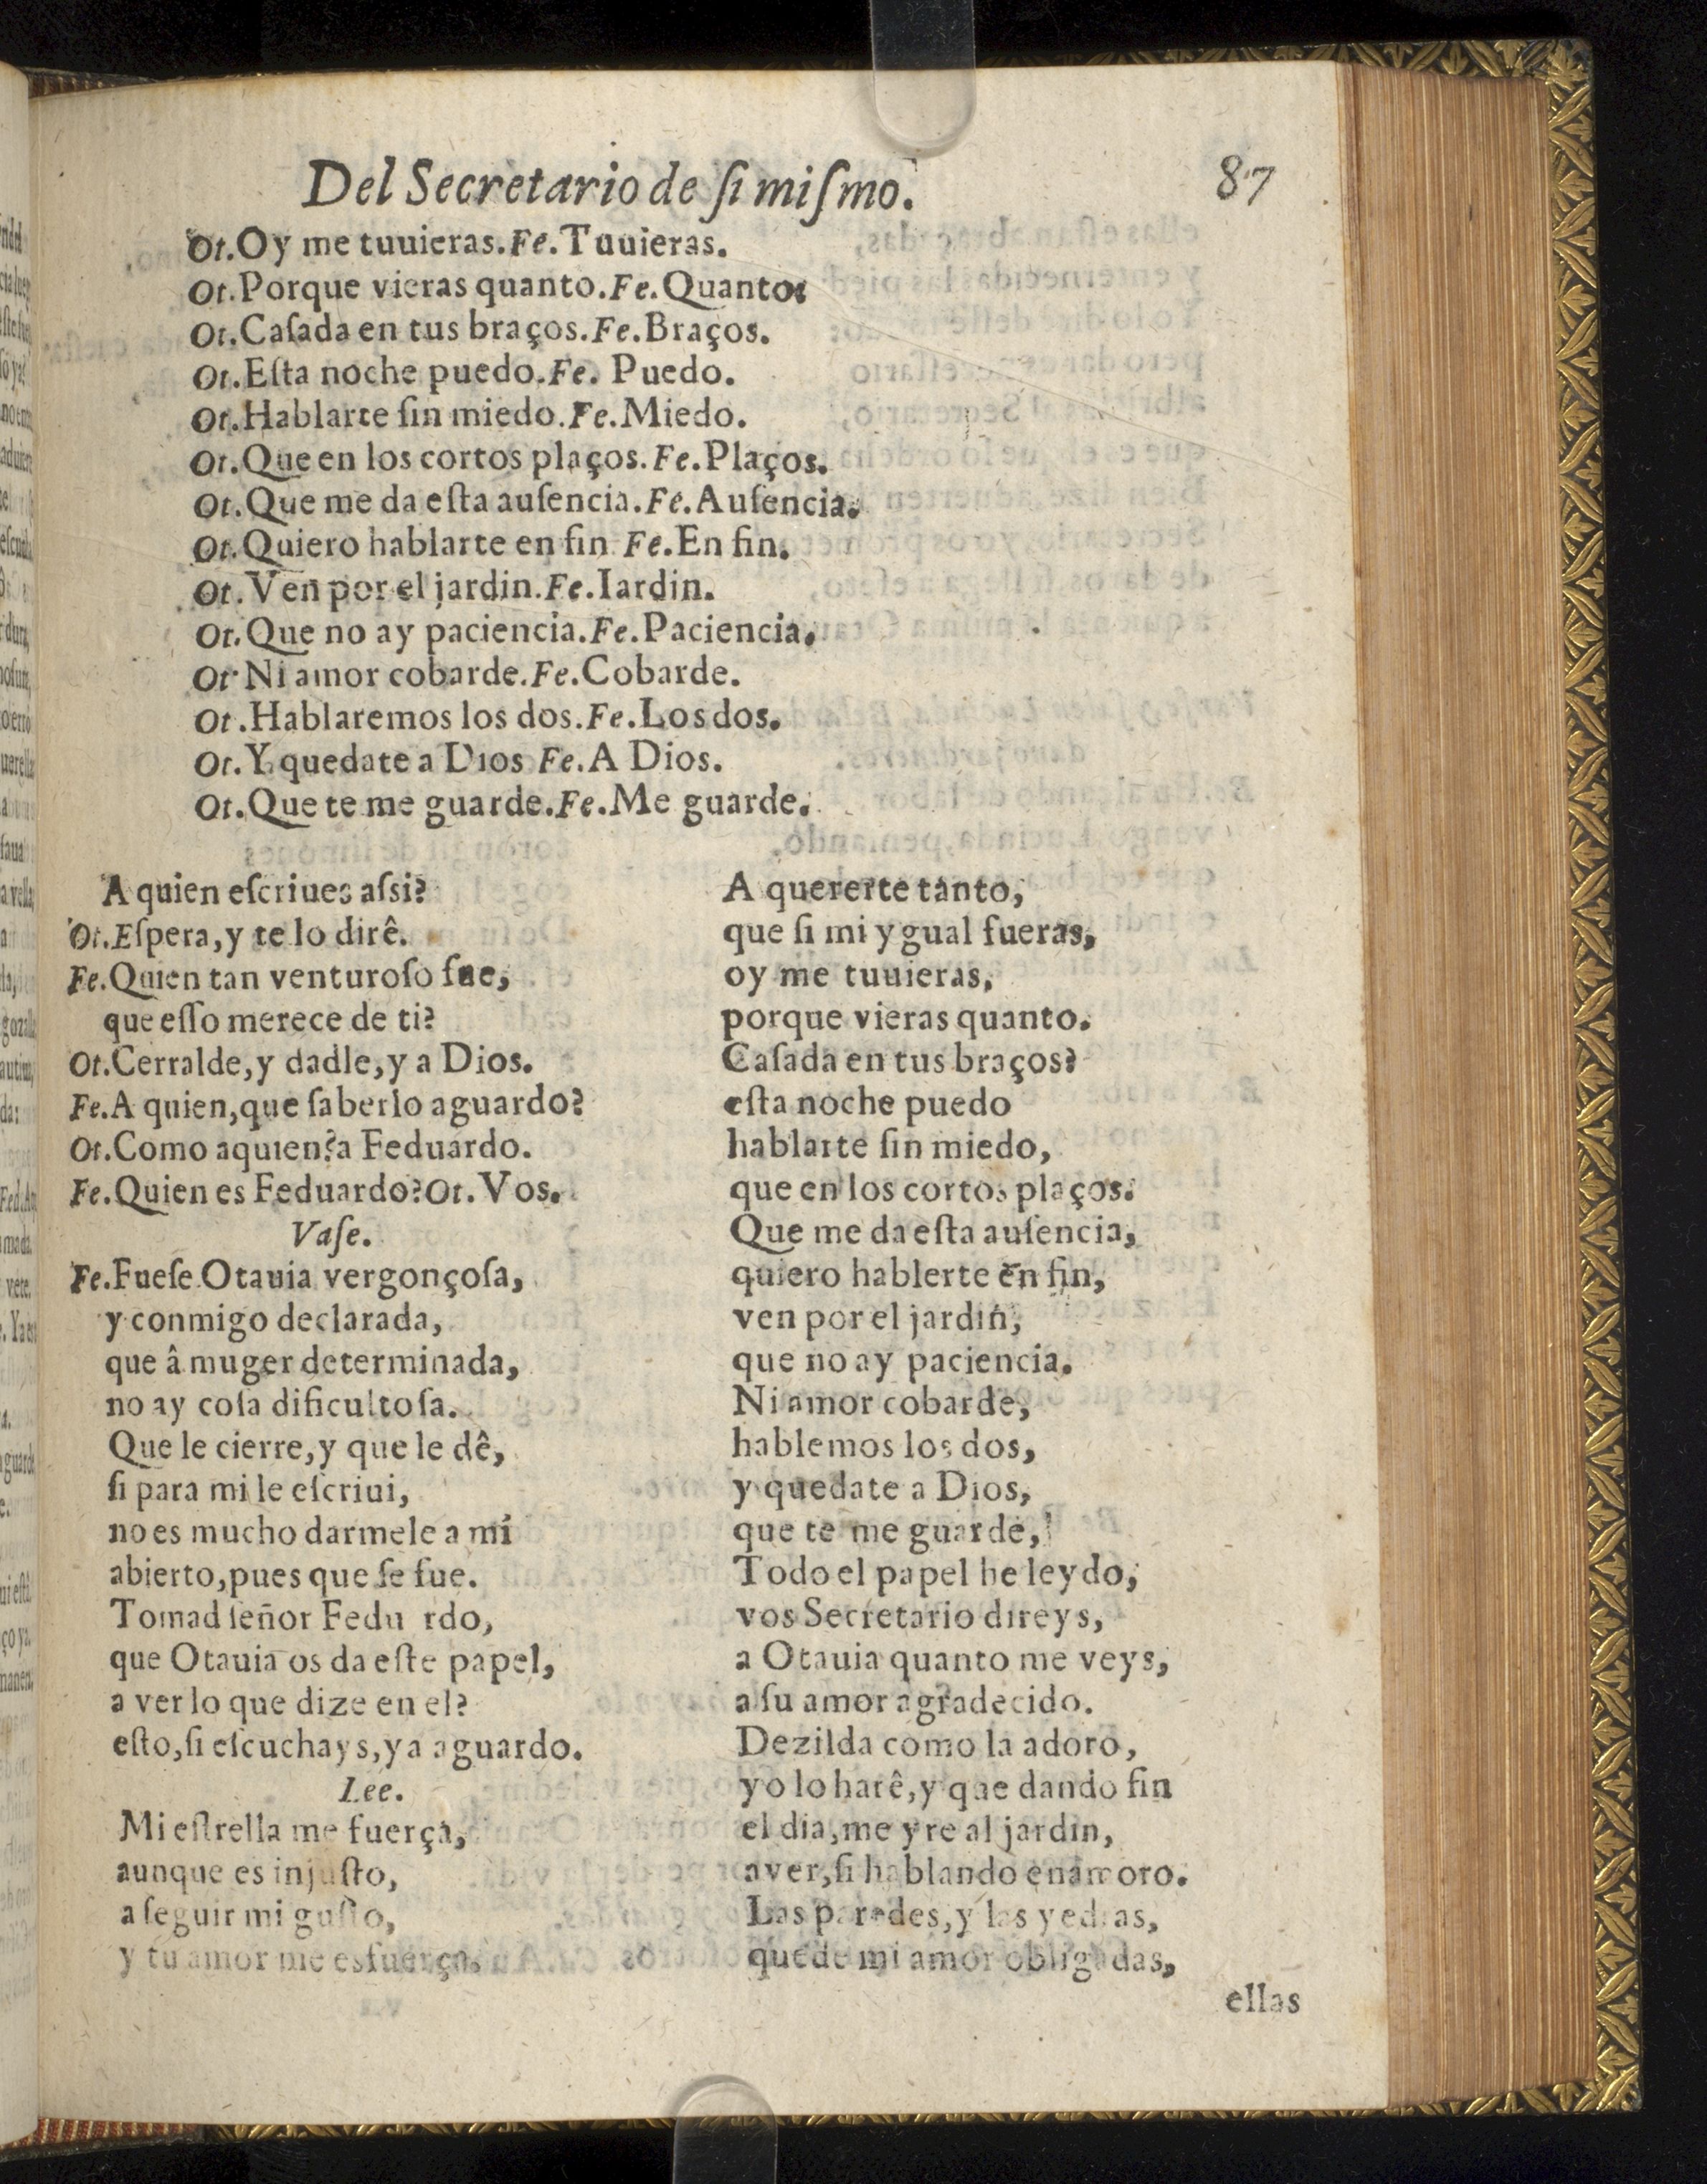 Del Secretario de ſi miſmo. 87
Ot.Oy me tuuieras.Fe.Tuuieras.
Ot.Porque vieras quanto.Fe.Quanto:
Ot.Caſada en tus braços.Fe.Braços.
Ot.Eſta noche puedo.Fe. Puedo.
Ot.Hablarte ſin miedo.Fe.Miedo.
Ot.Que en los cortos plaços.Fe.Plaços.
Ot.Que me da eſta auſencia.Fe.Auſencia.
Ot.Quiero hablarte en fin Fe.En fin.
Ot.Ven por el jardin.Fe.Iardin.
Ot.Que no ay paciencia.Fe.Paciencia.
Ot Ni amor cobarde.Fe.Cobarde.
Ot.Hablaremos los dos.Fe.Los dos.
Ot.Y quedate a Dios Fe.A Dios.
Ot.Que te me guarde.Fe.Me guarde.
A quien eſcriues aſsi?
Ot.Eſpera,y te lo dirê.
Fe.Quien tan venturoſo fue,
que eſſo merece de ti?
Ot.Cerralde,y dadle,y a Dios.
Fe.A quien,que ſaberlo aguardo?
Ot.Como aquien?a Feduardo.
Fe.Quien es Feduardo?Ot.Vos.
Vaſe.
Fe.Fueſe Otauia vergonçoſa,
y conmigo declarada,
que â muger determinada,
no ay coſa dificultoſa.
Que le cierre,y que le dê,
ſi para mi le eſcriui,
no es mucho darmele a mí
abierto,pues que ſe fue.
Tomad ſeñor Fedu rdo,
que Otauia os da eſte papel,
a ver lo que dize en el?
eſto,ſi eſcuchays,ya aguardo.
Lee.
Mi eſtrella me fuerça,
aunque es injuſto,
a ſeguir mi guſto,
y tu amor me esfuerça.
A quererte tanto,
que ſi mi ygual fueras,
oy me tuuieras,
porque vieras quanto.
Caſada en tus braços?
eſta noche puedo
hablarte ſin miedo,
que en los cortos plaços.
Que me da eſta auſencia,
quiero hablerte en fin,
ven por el jardin,
que no ay paciencia.
Ni amor cobarde,
hablemos los dos,
y quedate a Dios,
que te me guarde,
Todo el papel he leydo,
vos Secretario direys,
a Otauia quanto me veys,
a ſu amor agradecido.
Dezilda como la adoro,
yo lo harê,y que dando fin
el dia,me yre al jardin,
a ver,ſi hablando enamoro.
Las paredes,y las yedras,
que de mi amor obligadas,
ellas